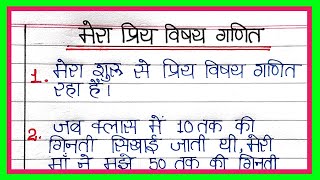 मेरा प्रिय विषय गणित
1. मेरा शुरू से प्रिय विषय गणित
रहा है।
2. जब क्लास में 10 तक की
गिनती सिखाई जाती थी, मेरी
माँ ने मुझे 50 तक की गिनती